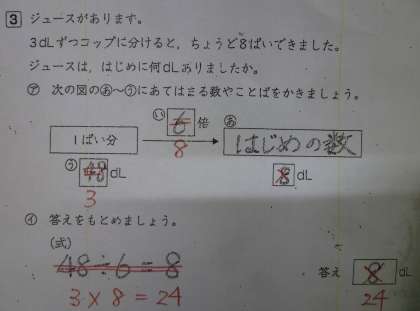 3 ジュースがあります。
3dLずつコップに分けると、ちょうど8ぱいできました。
ジュースは、はじめに何dLありましたか。
㋐ 次の図のあ~うにあてはまる数やことばをかきましょう。
い 6 倍 あ
1ぱい分 8 はじめの数
う 48 dL 8 dL
3
㋑ 答えをもとめましょう。
(式)
48÷6=8 答え 8 dL
3×8=24 24